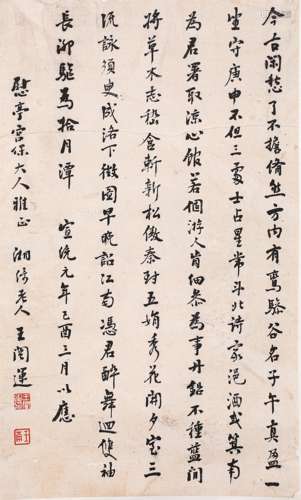 今古閑愁了不擔脩然方內有鸞驂谷名子午真盈一
坐守庚申不但三處士占星常斗北詩家浥酒或箕南
為君署取涼心館若個游人肯細參為事丹鉛不種藍閒
將草木志嵇含斬新松傲秦封五娟秀花開夕室三
流詠須臾成洛下徵圖早晚詔江南憑君醉舞迴雙袖
長為拾月潭 宣統元年己酉三月以應
慰亭宮保大人雅正 湘綺老人王闓運